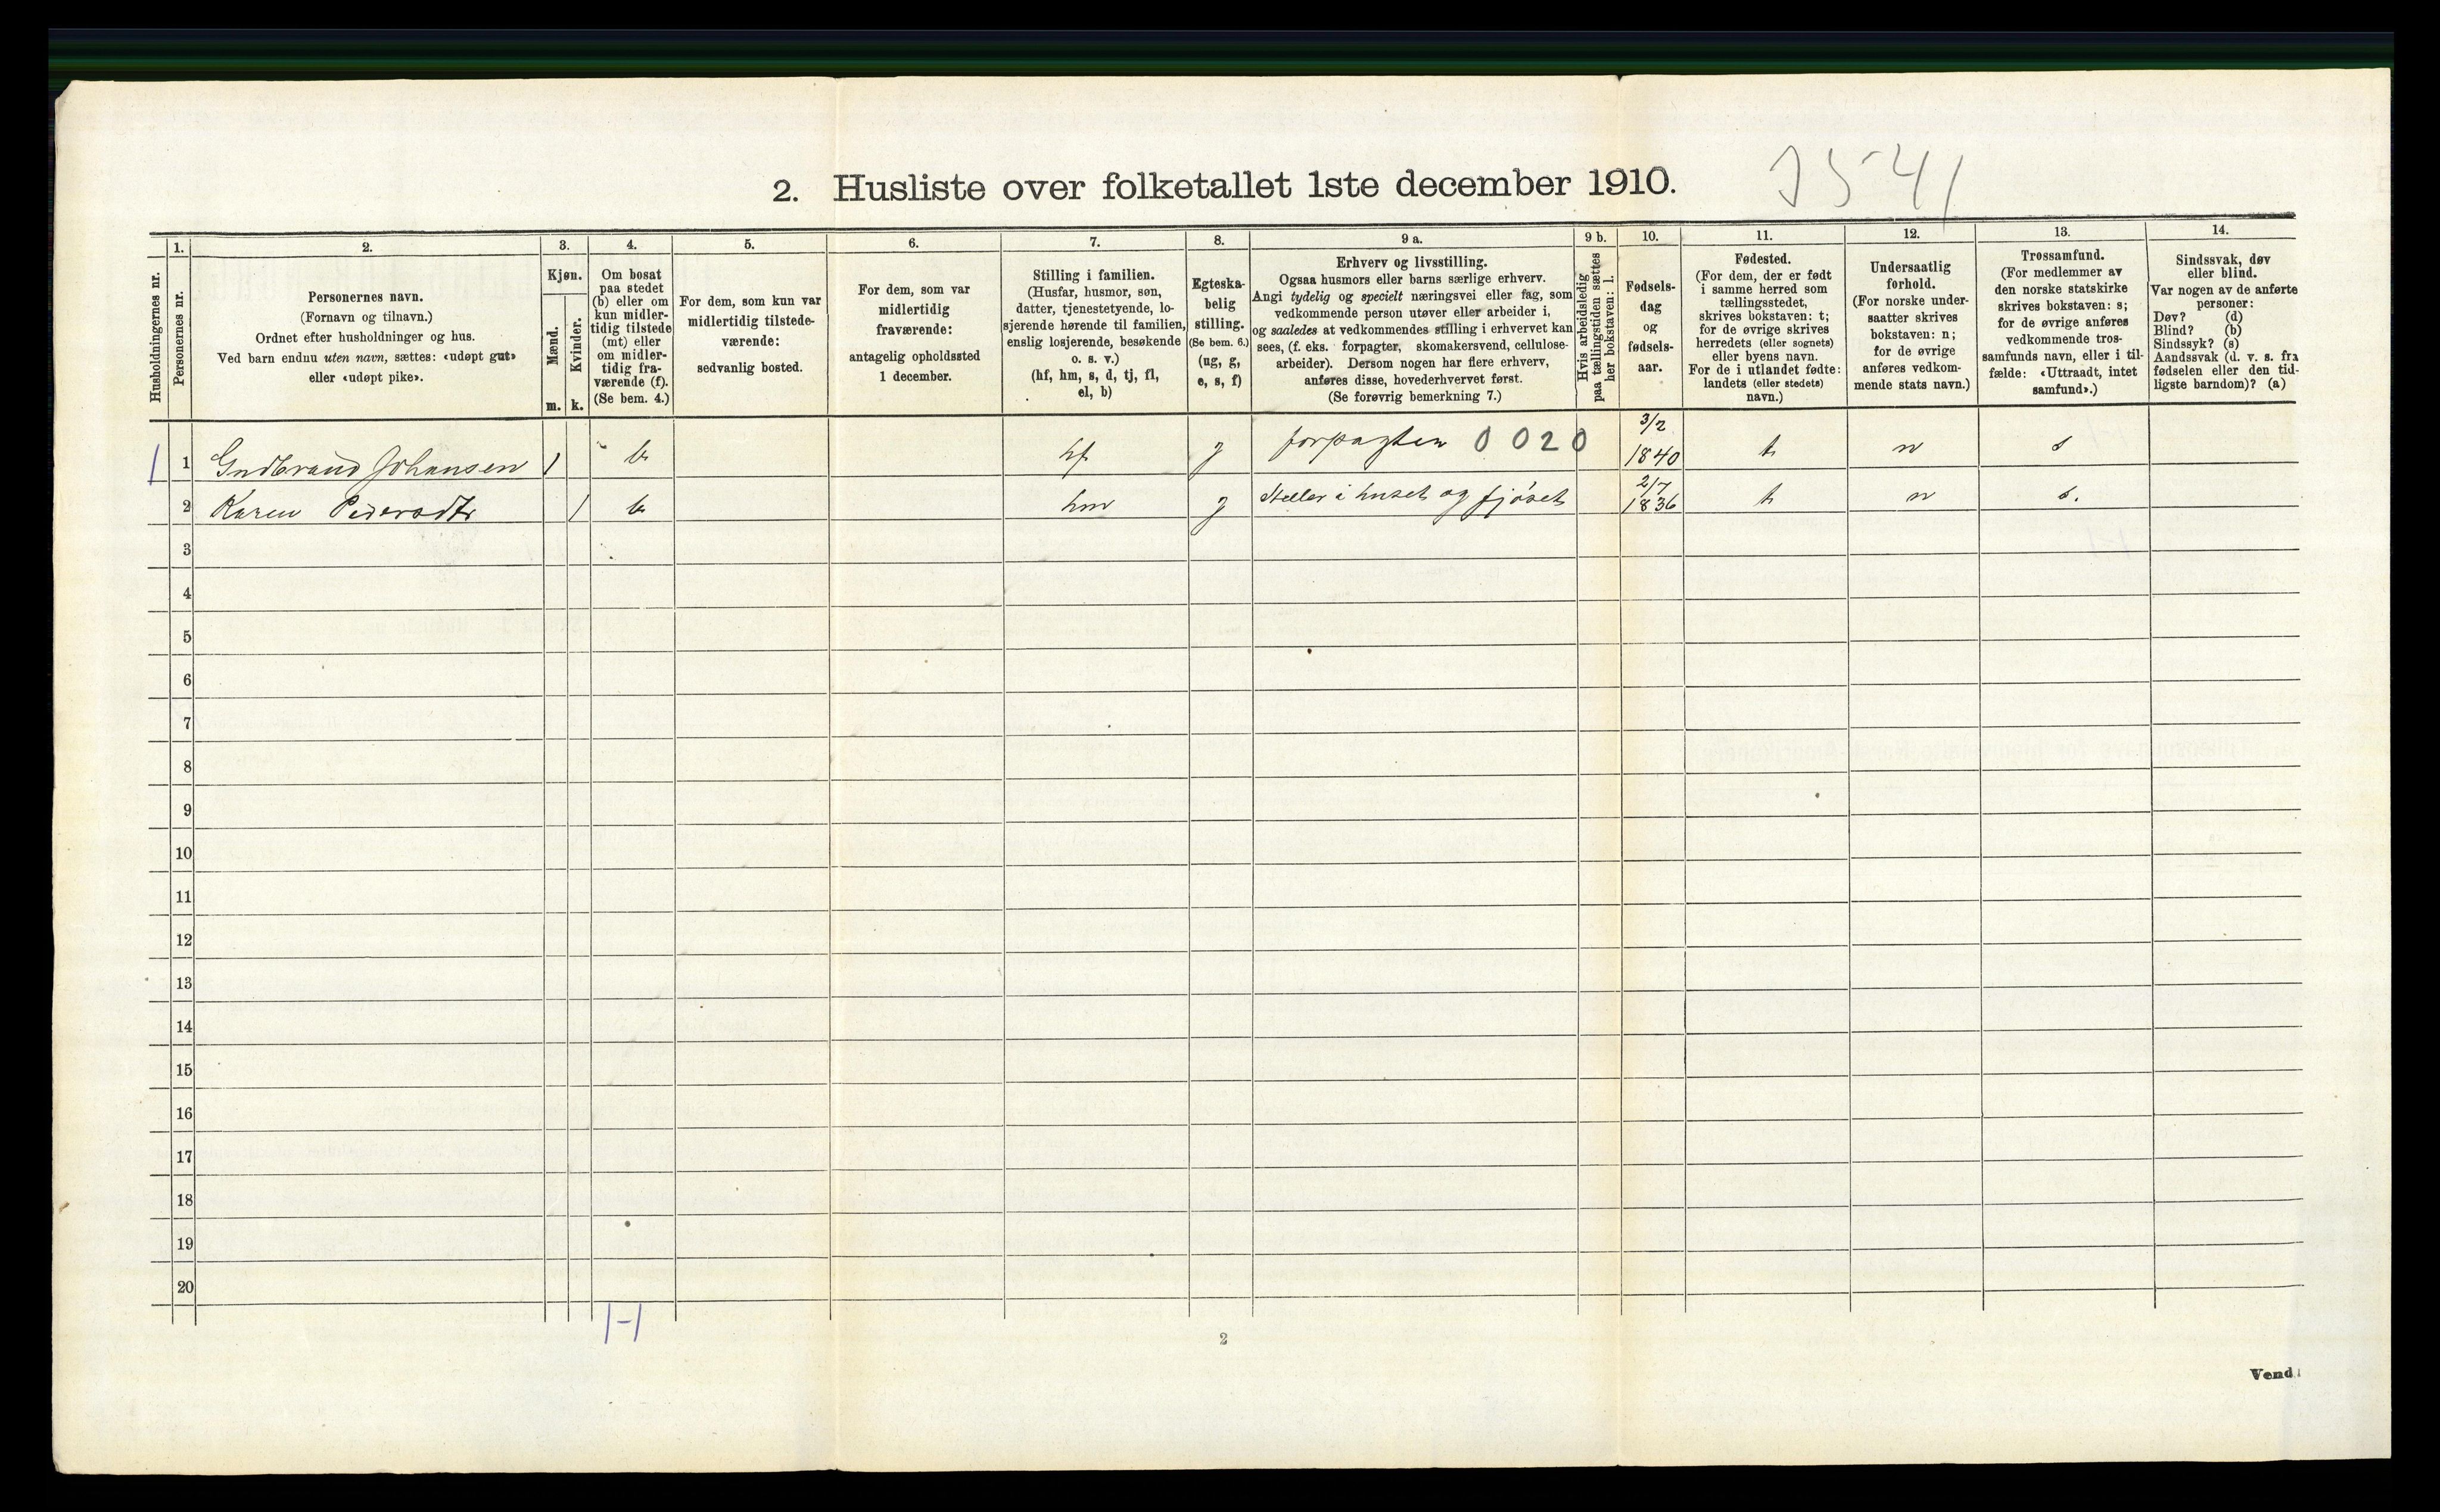 2. Husliste over folketallet 1ste december 1910.
Husholdningernes nr.
1.
Personernes nr.
2.
Personernes navn.
(Fornavn og tilnavn.)
Ordnet efter husholdninger og hus.
Ved barn endnu uten navn, sættes: «udøpt gut»
eller «udøpt pike».
3.
Kjøn.
Mænd.
Kvinder.
m. k.
4.
Om bosat
paa stedet
(b) eller om
kun midler-
tidig tilstede
(mt) eller
om midler-
tidig fra-
værende (f).
(Se bem. 4.)
5.
For dem, som kun var
midlertidig tilstede-
værende:
sedvanlig bosted.
6.
For dem, som var
midlertidig
fraværende:
antagelig opholdssted
1 december.
7.
Stilling i familien.
(Husfar, husmor, søn,
datter, tjenestetyende, lo-
sjerende hørende til familien,
enslig losjerende, besøkende
o. s. v.)
(hf, hm, s, d, tj, fl,
el, b)
8.
Egteska-
belig
stilling.
(Se bem. 6.)
(ug, g,
e, s, f)
9 a.
Erhverv og livsstilling.
Ogsaa husmors eller barns særlige erhverv.
Angi tydelig og specielt næringsvei eller fag, som
vedkommende person utøver eller arbeider i,
og saaledes at vedkommendes stilling i erhvervet kan
sees, (f. eks. forpagter, skomakersvend, cellulose-
arbeider). Dersom nogen har flere erhverv,
anføres disse, hovederhvervet først.
(Se forøvrig bemerkning 7.)
9 b.
Hvis arbeidsledig
paa tællingstiden sættes
her bokstaven: l.
10.
Fødsels-
dag
og
fødsels-
aar.
11.
Fødested.
(For dem, der er født
i samme herred som
tællingsstedet,
skrives bokstaven: t;
for de øvrige skrives
herredets (eller sognets)
eller byens navn.
For de i utlandet fødte:
landets (eller stedets)
navn.)
12.
Undersaatlig
forhold.
(For norske under-
saatter skrives
bokstaven: n;
for de øvrige
anføres vedkom-
mende stats navn.)
13.
Trossamfund.
(For medlemmer av
den norske statskirke
skrives bokstaven: s;
for de øvrige anføres
vedkommende tros-
samfunds navn, eller i til-
fælde: «Uttraadt, intet
samfund».)
14.
Sindssvak, døv
eller blind.
Var nogen av de anførte
personer:
Døv? (d)
Blind? (b)
Sindssyk? (s)
Aandssvak (d. v. s. fra
fødselen eller den tid-
ligste barndom)? (a)
1 1 Gudbrand Johansen 1 b hf g forpagter 0020 3/2 1840 t n s
2 Karen Pedersdtr 1 b hm g steller i huset og fjøset 2/7 1836 t n s.
3
4
5
6
7
8
9
10
11
12
13
14
15
16
17
18
19
20
1-1
2
Vend